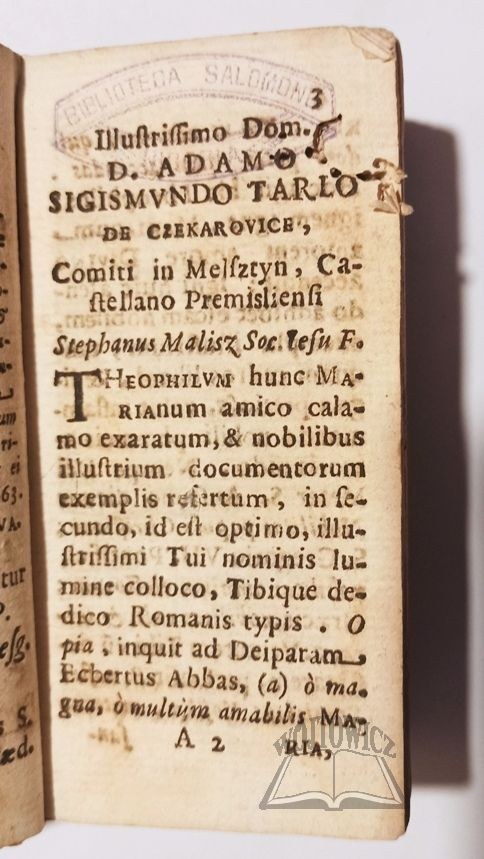 BIBLIOTECA SALOMONS
3
Illuſtriſſimo Dom.
D. ADAMO
SIGISMVNDO TARLO
DE CZEKAROVICE,
Comiti in Melſztyn, Ca-
ſtellano Premislienſi
Stephanus Malisz Soc. Ieſu F.
THEOPHILVM hunc MA-
RIAnum amico cala-
mo exaratum, & nobilibus
illuſtrium documentorum
exemplis refertum, in ſe-
cundo, id eſt optimo, illu-
ſtriſſimi Tui nominis lu-
mine colloco, Tibique de-
dico Romanis typis. O
pia, inquit ad Deiparam
Ecbertus Abbas, (a) ò ma-
gna, ò multùm amabilis MA-
A 2 RIA,
WÓJTOWICZ
um
ri-
ei
63.
VA.
tur
P.
eſg.
s S.
æd.